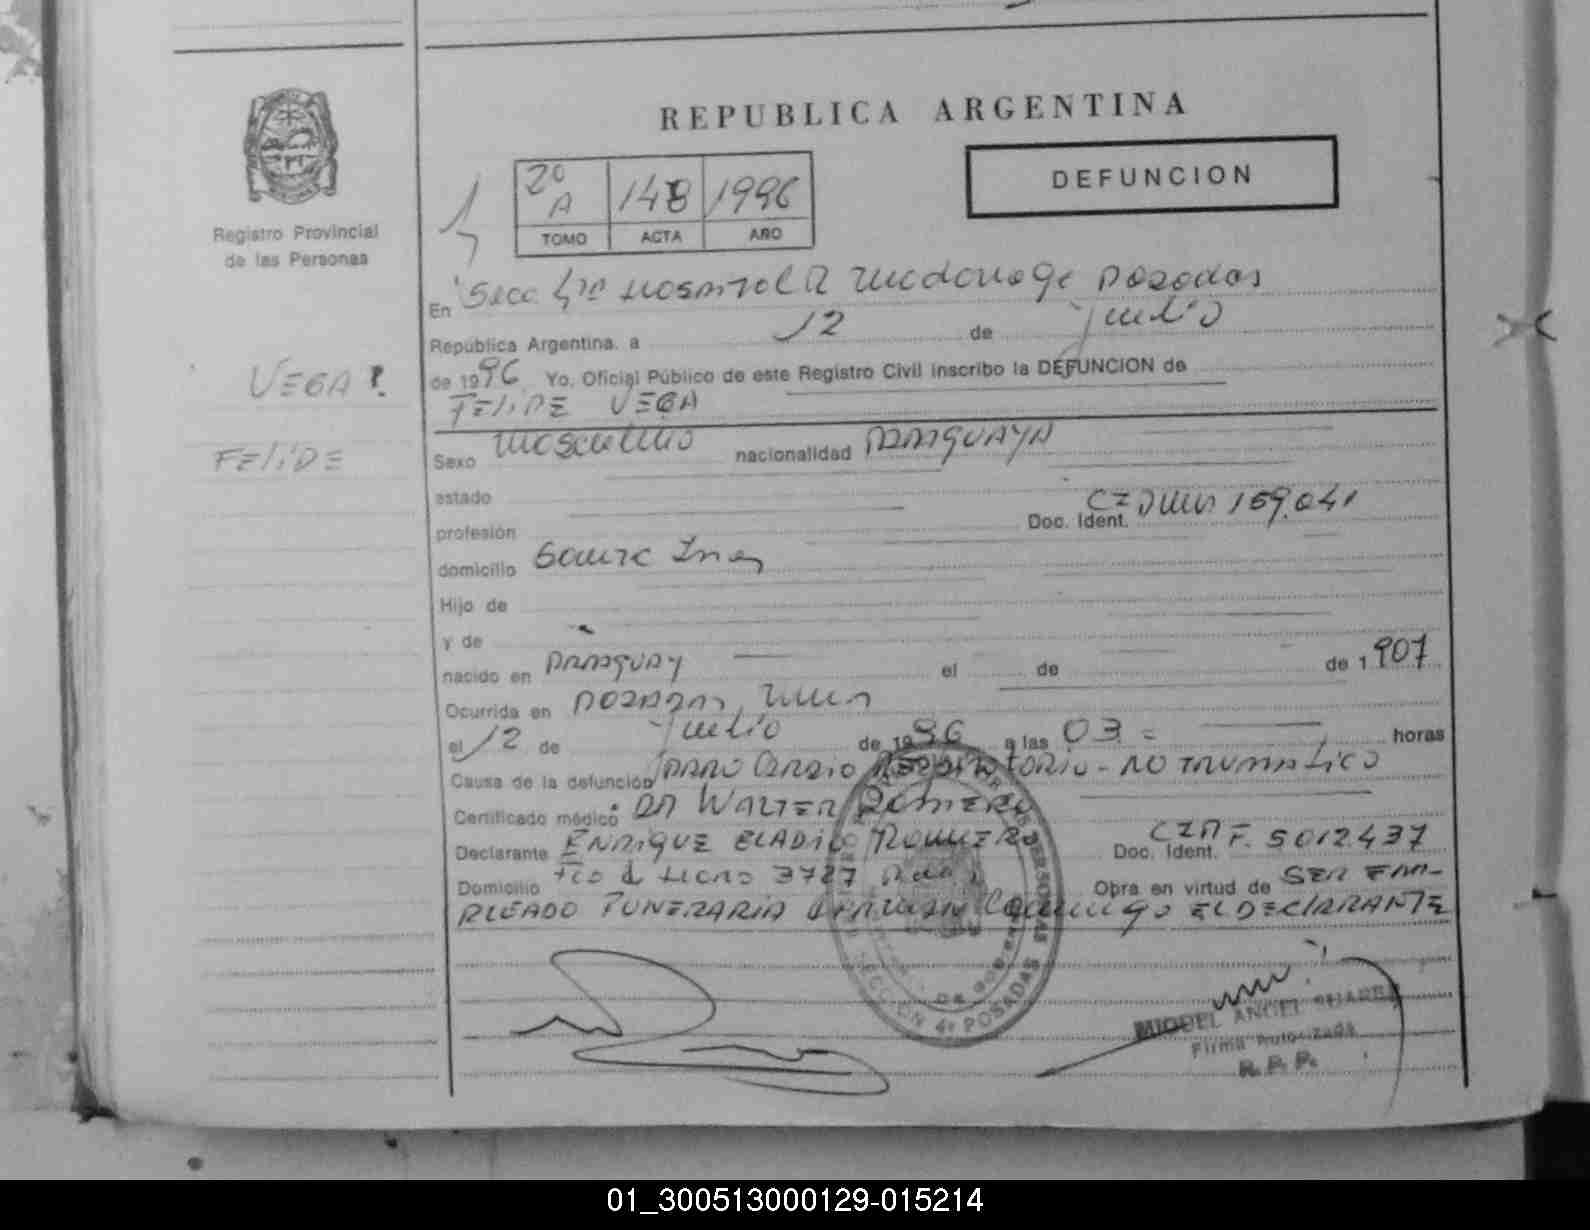 REPUBLICA ARGENTINA
DEFUNCION
2º A 148 1996
TOMO ACTA AÑO
Registro Provincial
de las Personas
En Secc 4ta Hospital R Madariaga Posadas
República Argentina, a 12 de julio
VEGA
de 1996 Yo, Oficial Público de este Registro Civil inscribo la DEFUNCION de
FELIPE VEGA
FELIPE
Sexo masculino nacionalidad PARAGUAYA
estado
profesión Doc. Ident. 159.041
domicilio
Hijo de
y de
nacido en PARAGUAY el de de 1907
Ocurrida en POSADAS,
el 12 de julio de 1996 a las 03 = horas
Causa de la defunción PARO CARDIO RESPIRATORIO - NO TRUMATICO
Certificado médico DR WALTER ROMERO
Declarante ENRIQUE ELADIO ROMERO Doc. Ident. 5012437
Domicilio 3727 Obra en virtud de SER EM-
PLEADO FUNERARIA EL DECLARANTE
SECCION 4ª POSADAS
MIGUEL ANGEL SUAREZ
Firma Autorizada
R. P. P.
01_300513000129-015214